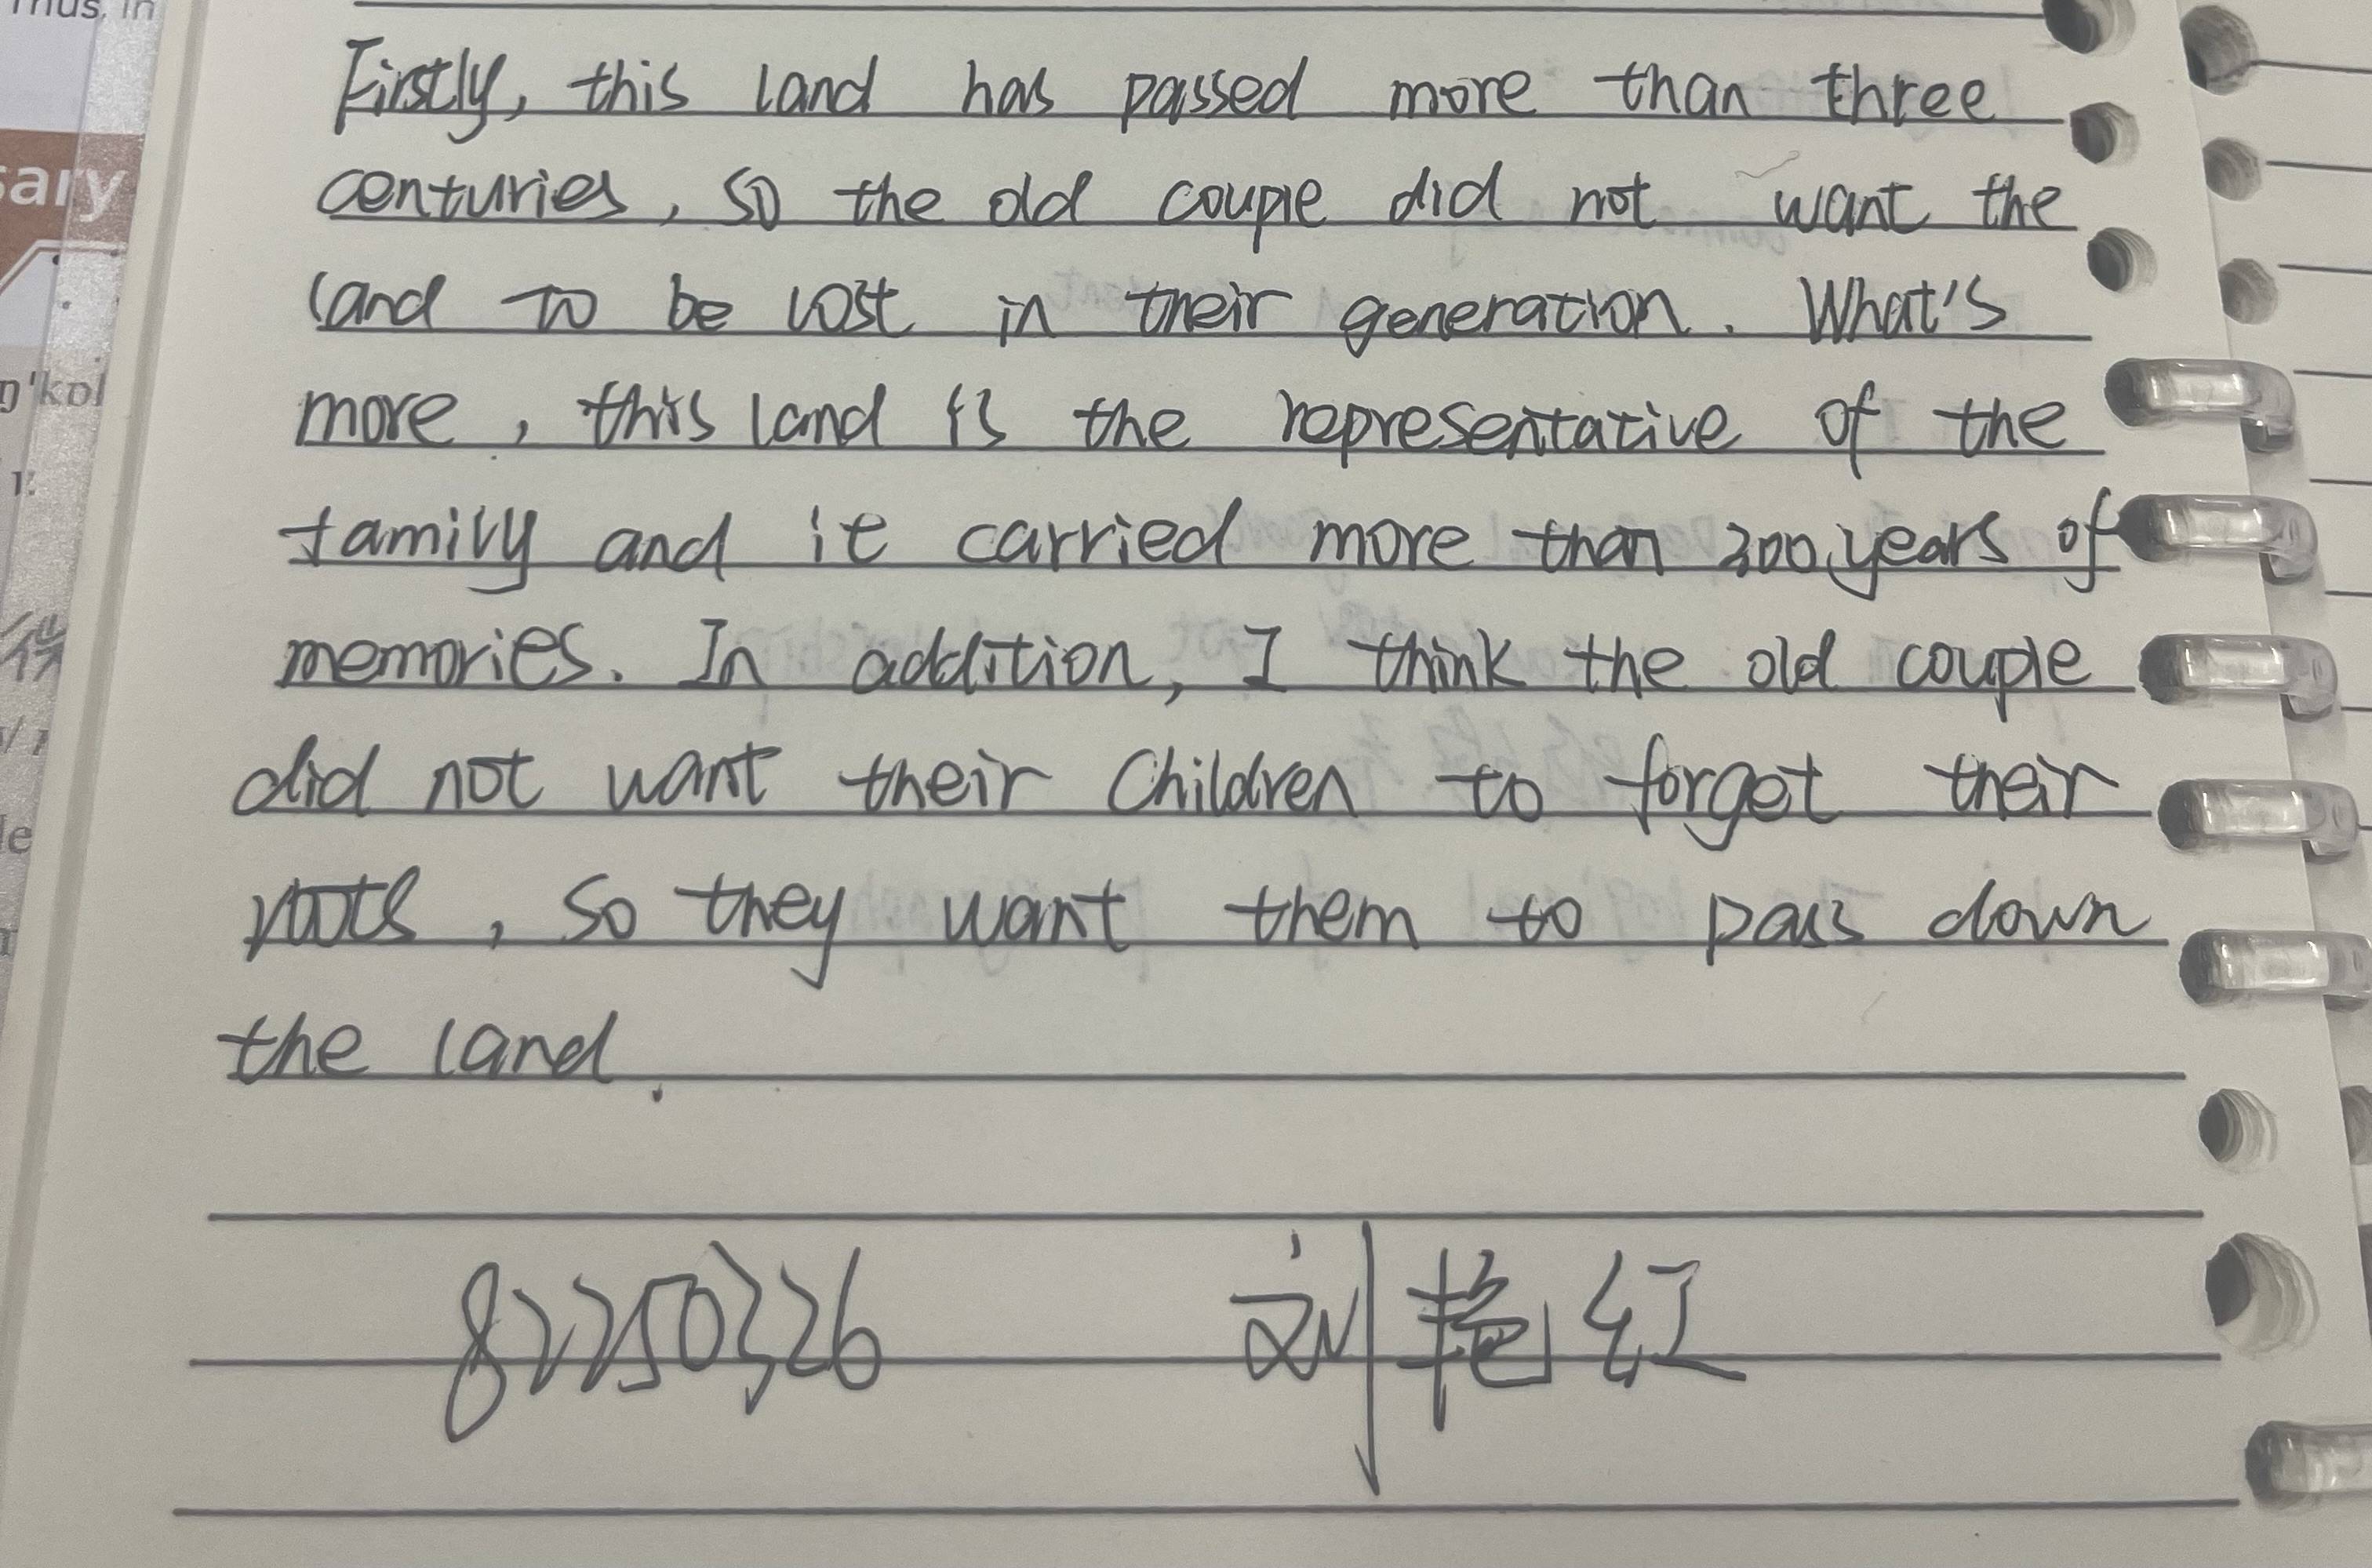 Thus, in
sary
Firstly, this land has passed more than three
centuries, so the old couple did not want the
land to be lost in their generation. What's
more, this land is the representative of the
family and it carried more than 300 years of
memories. In addition, I think the old couple
did not want their children to forget their
roots, so they want them to pass down
the land.
82250326 刘艳红